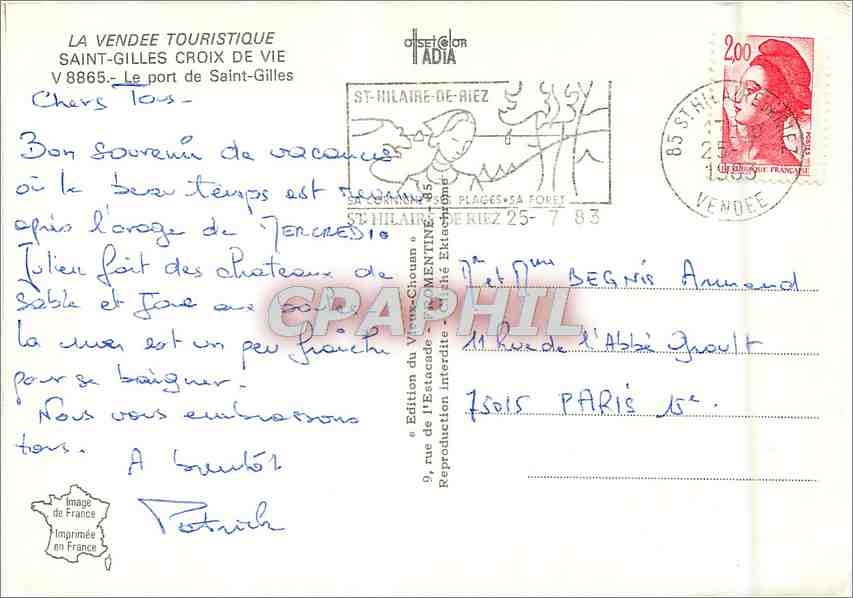 LA VENDEE TOURISTIQUE
SAINT-GILLES CROIX DE VIE
V 8865.- Le port de Saint-Gilles
offset color
IADIA
Chers Tous-
Bon souvenir de vacances
où le beau temps est revenu
après l'orage de MERCREDI.
Julien fait des chateaux de
sable et joue aux boules
la mer est un peu fraîche
pour se baigner.
Nous vous embrassons
tous.
A bientôt
Patrick
Image
de France
Imprimée
en France
« Edition du Vieux-Chouan »
9, rue de l'Estacade - FROMENTINE - 85
Reproduction interdite - Cliché Ektachrome
ST-HILAIRE-DE-RIEZ
SA CORNICHE•SES PLAGES•SA FORET
ST-HILAIRE DE RIEZ 25- 7 83
85 ST HILAIRE DE RIEZ
25-7
1983
VENDEE
2,00
POSTES
REPUBLIQUE FRANÇAISE
Mr et Mme BEGNIS Armand
11 Rue de l'Abbé Groult
75015 PARIS 15e.
CPAPHIL